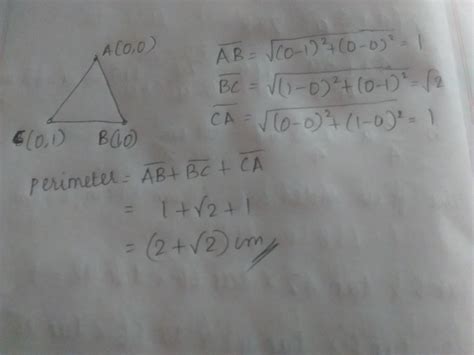 A(0,0)
C(0,1) B(1,0)
AB = √(0-1)²+(0-0)² = 1
BC = √(1-0)²+(0-1)² = √2
CA = √(0-0)²+(1-0)² = 1
Perimeter = AB + BC + CA
= 1+√2+1
= (2+√2) cm